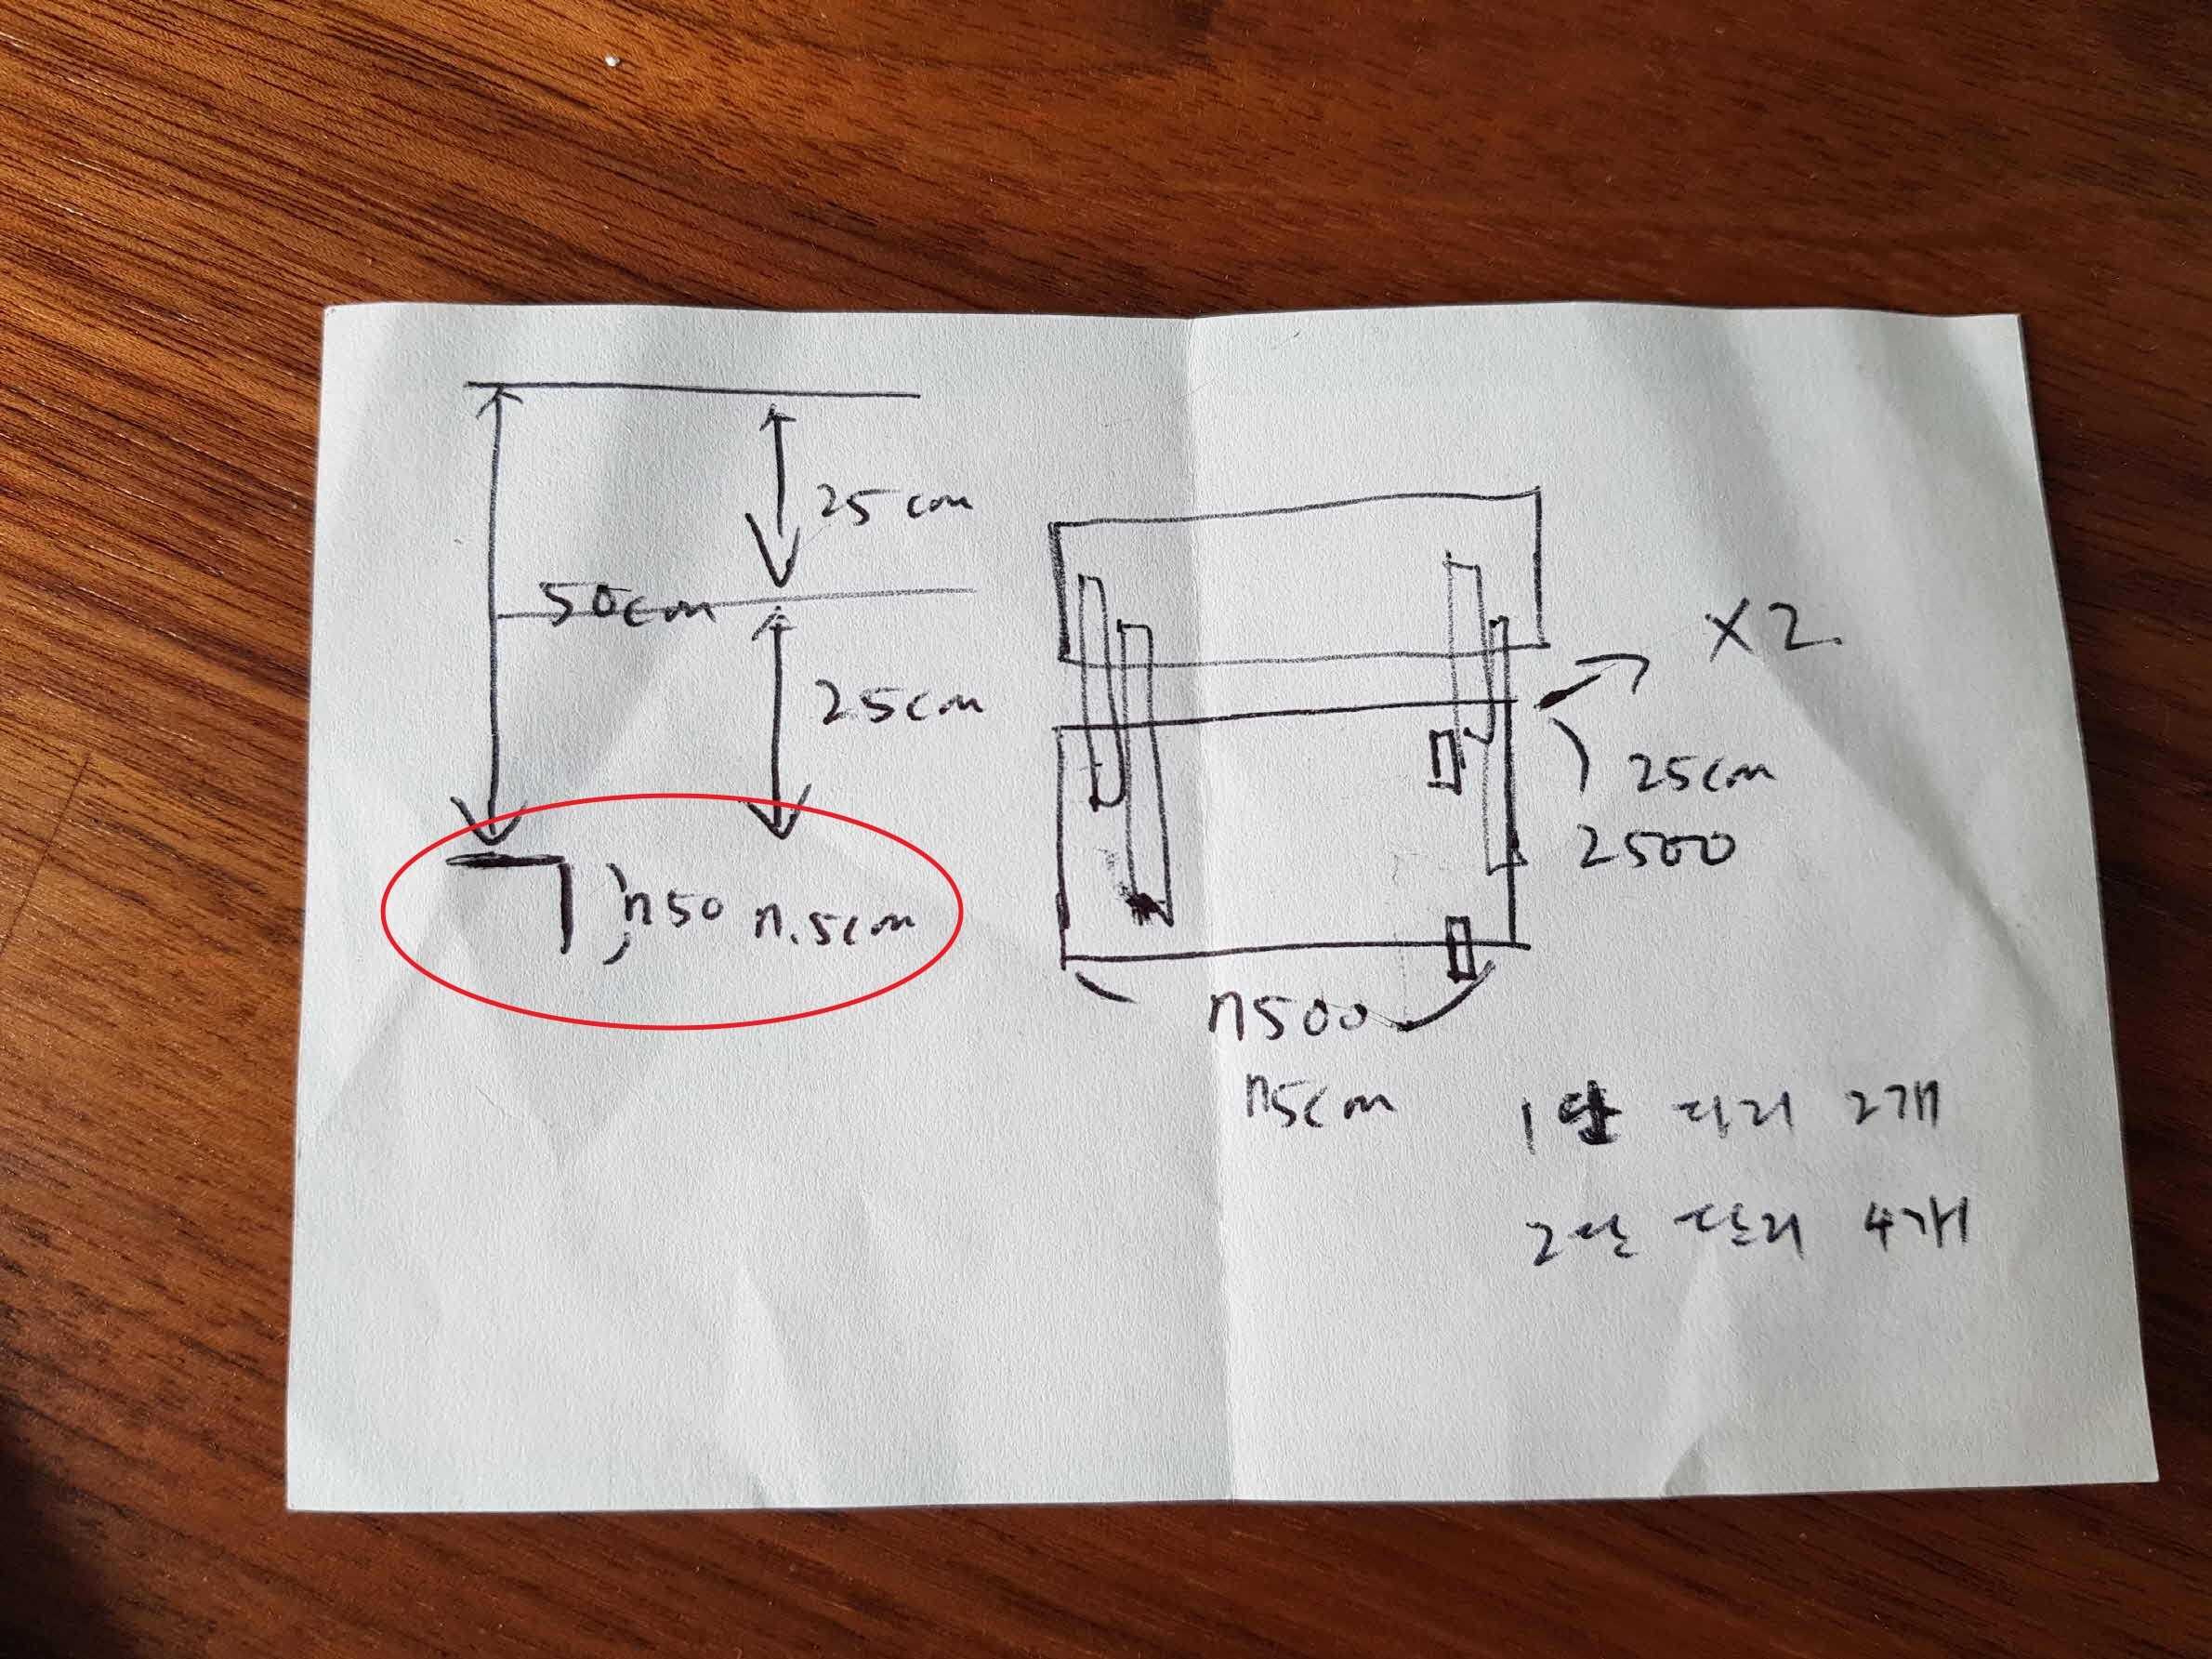 25cm
50cm
25cm
750 7.5cm
X2
25cm
2500
7500
75cm
1단 다리 2개
2단 다리 4개